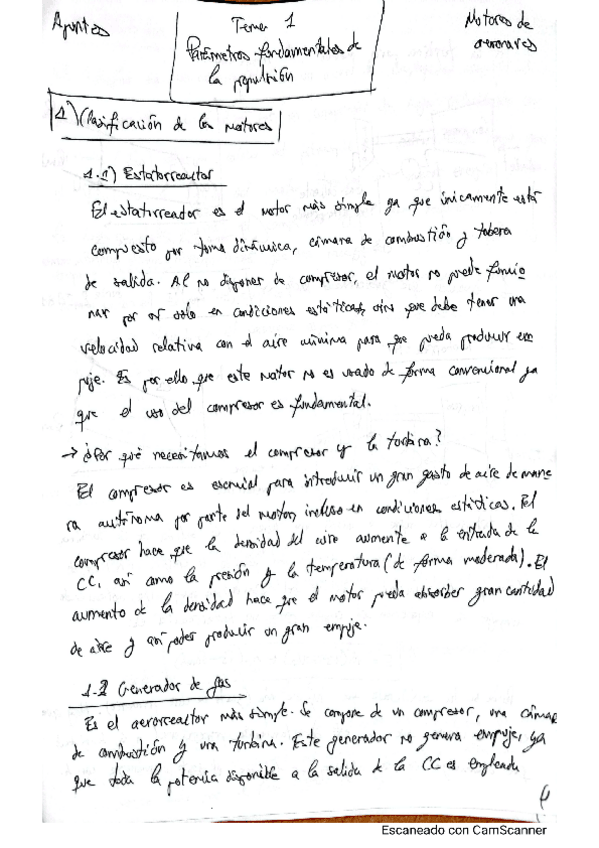 Apuntes
Tema 1
Motores de
aeronaves
Parámetros fundamentales de
la propulsión
1) Clasificación de los motores
1.1) Estatorreactor
El estatorreactor es el motor más simple ya que únicamente está
compuesto por toma dinámica, cámara de combustión y tobera
de salida. Al no disponer de compresor, el motor no puede funcio
nar por sí solo en condiciones estáticas, sino que debe tener una
velocidad relativa con el aire mínima para que pueda producir em
puje. Es por ello que este motor no es usado de forma convencional ya
que el uso del compresor es fundamental.
→ ¿Por qué necesitamos el compresor y la turbina?
El compresor es esencial para introducir un gran gasto de aire de mane
ra autónoma por parte del motor, incluso en condiciones estáticas. El
compresor hace que la densidad del aire aumente a la entrada de la
CC, así como la presión y la temperatura (de forma moderada). El
aumento de la densidad hace que el motor pueda absorber gran cantidad
de aire y así poder producir un gran empuje.
1.2 Generador de gas
Es el aerorreactor más simple. Se compone de un compresor, una cámara
de combustión y una turbina. Este generador no genera empuje, ya
que toda la potencia disponible a la salida de la CC es empleada
Escaneado con CamScanner